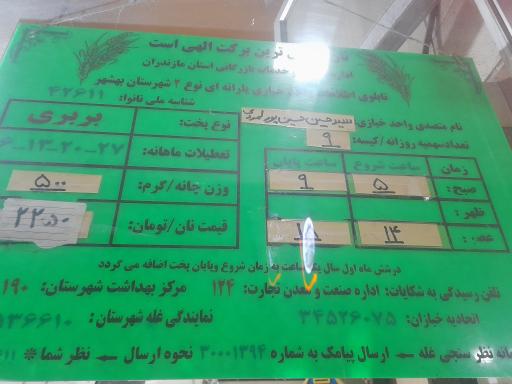 ترین برکت الهی است
خدمات بازرگانی استان مازندران
تابلوی خبازی یارانه ای نوع ۲ شهرستان بهشهر
شناسه ملی نانوا: ۴۲۶۱۱
نام متصدی واحد خبازی
تعدادسهمیه روزانه /کیسه: ۹
نوع پخت: بربری
تعطیلات ماهانه: ۲۷-۲۰-۱۳-۶
وزن چانه/گرم: ۵۰۰
قیمت نان/تومان: ۲۲۵۰
زمان ساعت شروع ساعت پایان
صبح: ۵ ۹
ظهر:
عصر: ۱۴
درشش ماه اول سال یک ساعت به زمان شروع وپایان پخت اضافه می گردد
تلفن رسیدگی به شکایات: اداره صنعت و معدن تجارت: ۱۲۴ مرکز بهداشت شهرستان: ۱۹۰
اتحادیه خبازان: ۳۴۵۲۶۰۷۵ نمایندگی غله شهرستان:
نظر سنجی غله ← ارسال پیامک به شماره ۳۰۰۰۱۳۹۴ نحوه ارسال ← نظر شما *